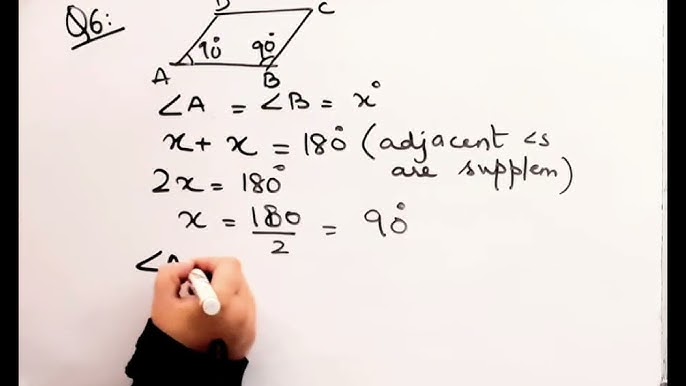 Q6:
D C
90° 90°
A B
∠A = ∠B = x°
x + x = 180° (adjacent ∠s
are supplem)
2x = 180°
x = 180/2 = 90°
∠A